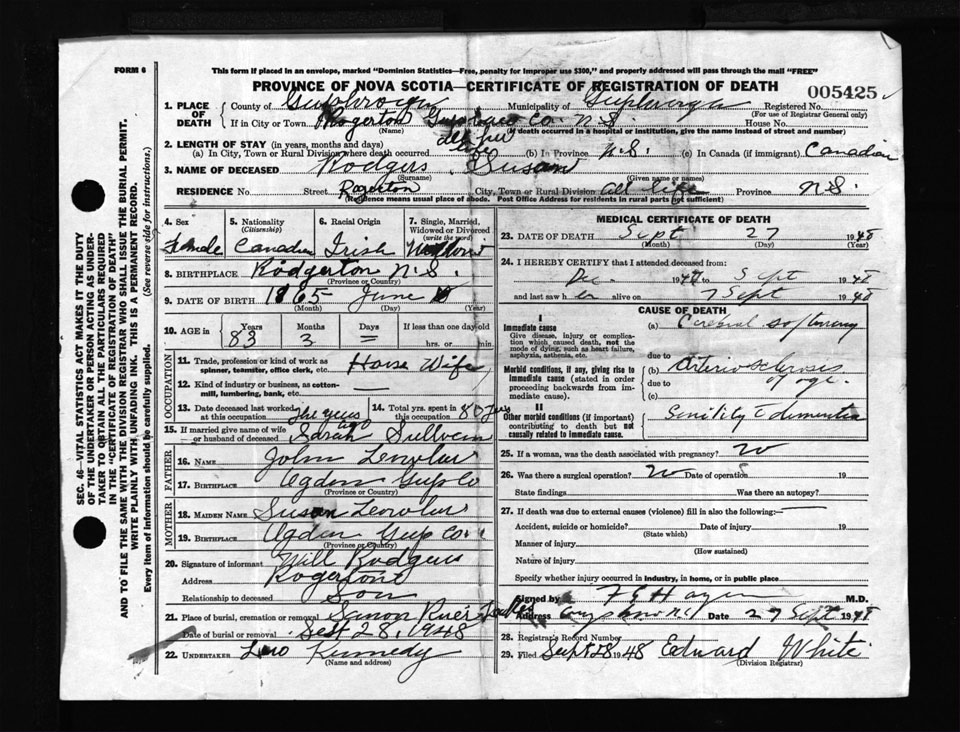 FORM 6
This form if placed in an envelope, marked "Dominion Statistics—Free, penalty for improper use $300," and properly addressed will pass through the mail "FREE"
PROVINCE OF NOVA SCOTIA—CERTIFICATE OF REGISTRATION OF DEATH
005425
1. PLACE OF DEATH
County of Municipality of Registered No.
(For use of Registrar General only)
If in City or Town, Co. N.S. House No.
(Name) (If death occurred in a hospital or institution, give the name instead of street and number)
2. LENGTH OF STAY (in years, months and days)
(a) In City, Town or Rural Division where death occurred all her life (b) In Province N.S. (c) In Canada (if immigrant) Canadian
3. NAME OF DECEASED Rodgers Susan
(Surname) (Given name or names)
RESIDENCE No. Street Rogerton City, Town or Rural Division all life Province N.S.
(Residence means usual place of abode. Post Office Address for residents in rural parts not sufficient)
4. Sex
Female
5. Nationality
(Citizenship)
Canadian
6. Racial Origin
Irish
7. Single, Married, Widowed or Divorced
(write the word)
8. BIRTHPLACE Rodgerton N.S.
(Province or Country)
9. DATE OF BIRTH 1865 June
(Month) (Day) (Year)
10. AGE in
Years Months Days If less than one day old
83 3 — hrs. or min.
OCCUPATION
11. Trade, profession or kind of work as spinner, teamster, office clerk, etc. House Wife
12. Kind of industry or business, as cotton-mill, lumbering, bank, etc. —
13. Date deceased last worked at this occupation ago
14. Total yrs. spent in this occupation
15. If married give name of wife or husband of deceased Sarah
FATHER
16. NAME John
17. BIRTHPLACE Ogden Guys Co
(Province or Country)
MOTHER
18. MAIDEN NAME Susan
19. BIRTHPLACE Ogden Guys Co.
(Province or Country)
20. Signature of informant Will Rodgers
Address
Relationship to deceased Son
21. Place of burial, cremation or removal River
Date of burial or removal Sept 28, 1948
22. UNDERTAKER Leo Kennedy
(Name and address)
MEDICAL CERTIFICATE OF DEATH
23. DATE OF DEATH Sept 27 1948
(Month) (Day) (Year)
24. I HEREBY CERTIFY that I attended deceased from:
Dec. to Sept 1948
and last saw her alive on 7 Sept 1948
CAUSE OF DEATH
I
Immediate cause
Give disease, injury or complication which caused death, not the mode of dying, such as heart failure, asphyxia, asthenia, etc.
(a) Cerebral softening
due to
Morbid conditions, if any, giving rise to immediate cause (stated in order proceeding backwards from immediate cause).
(b) Arteriosclerosis
due to of age.
(c)
II
Other morbid conditions (if important) contributing to death but not causally related to immediate cause.
Senility dementia
25. If a woman, was the death associated with pregnancy? no
26. Was there a surgical operation? no Date of operation 19
State findings Was there an autopsy?
27. If death was due to external causes (violence) fill in also the following:—
Accident, suicide or homicide? Date of injury 19
(State which)
Manner of injury
(How sustained)
Nature of injury
Specify whether injury occurred in industry, in home, or in public place
Signed by M.D.
Address Date 27 Sept 1948
28. Registrar's Record Number
29. Filed Sept 28 1948 Edward White
(Division Registrar)
SEC. 46—VITAL STATISTICS ACT MAKES IT THE DUTY
OF THE UNDERTAKER OR PERSON ACTING AS UNDER-
TAKER TO OBTAIN ALL THE PARTICULARS REQUIRED
IN THE "CERTIFICATE OF REGISTRATION OF DEATH"
AND TO FILE THE SAME WITH THE DIVISION REGISTRAR WHO SHALL ISSUE THE BURIAL PERMIT.
WRITE PLAINLY WITH UNFADING INK. THIS IS A PERMANENT RECORD.
Every item of information should be carefully supplied. (See reverse side for instructions.)